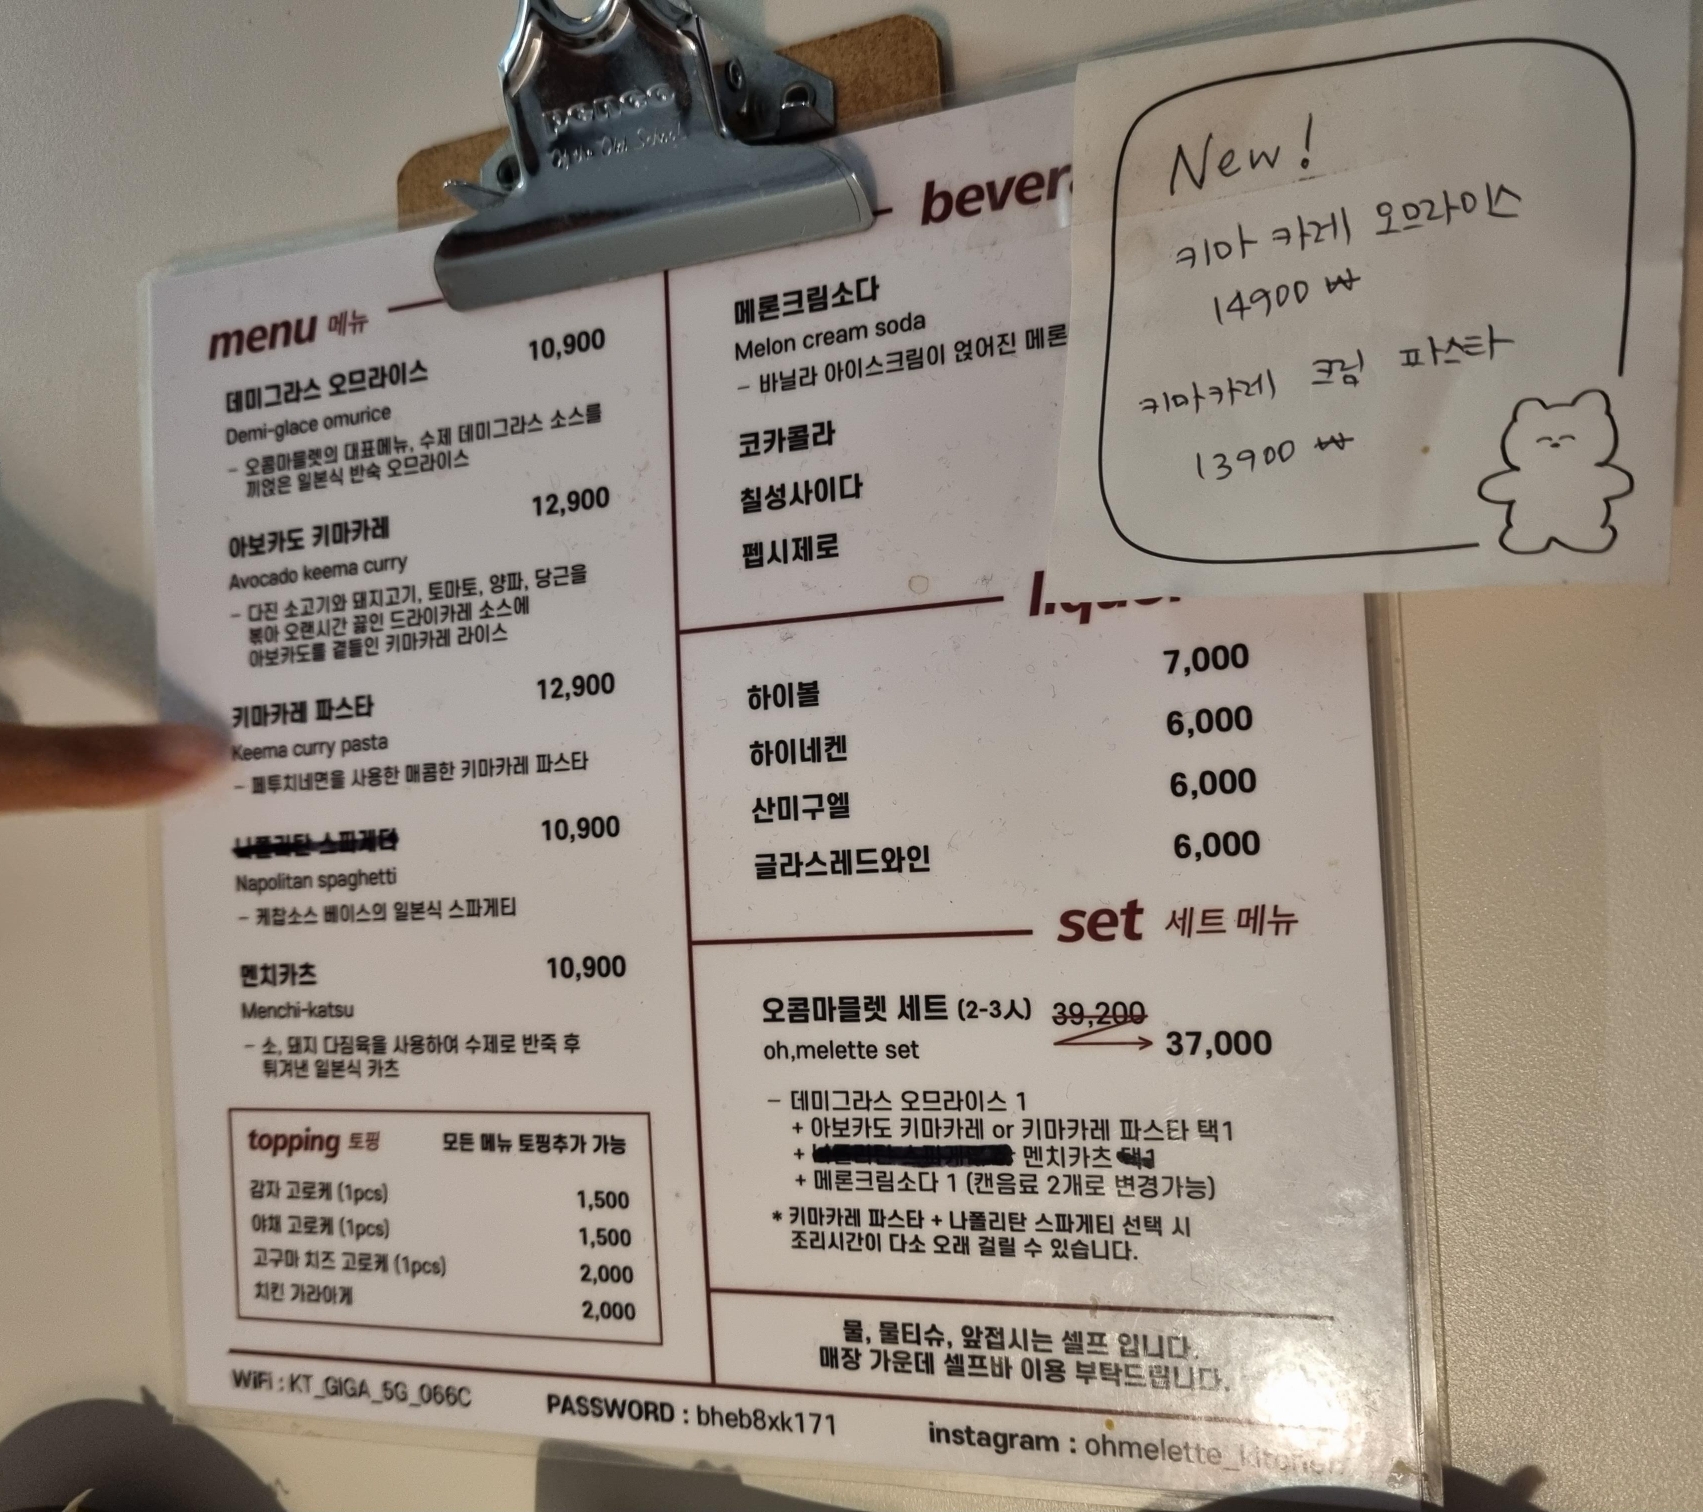 penco
Of the Old School
menu 메뉴
데미그라스 오므라이스 10,900
Demi-glace omurice
- 오콤마믈렛의 대표메뉴, 수제 데미그라스 소스를
끼얹은 일본식 반숙 오므라이스
아보카도 키마카레 12,900
Avocado keema curry
- 다진 소고기와 돼지고기, 토마토, 양파, 당근을
볶아 오랜시간 끓인 드라이카레 소스에
아보카도를 곁들인 키마카레 라이스
키마카레 파스타 12,900
Keema curry pasta
- 페투치네면을 사용한 매콤한 키마카레 파스타
나폴리탄 스파게티 10,900
Napolitan spaghetti
- 케찹소스 베이스의 일본식 스파게티
멘치카츠 10,900
Menchi-katsu
- 소, 돼지 다짐육을 사용하여 수제로 반죽 후
튀겨낸 일본식 카츠
topping 토핑 모든 메뉴 토핑추가 가능
감자 고로케 (1pcs) 1,500
야채 고로케 (1pcs) 1,500
고구마 치즈 고로케 (1pcs) 2,000
치킨 가라아게 2,000
메론크림소다
Melon cream soda
- 바닐라 아이스크림이 얹어진 메론
코카콜라
칠성사이다
펩시제로
하이볼 7,000
하이네켄 6,000
산미구엘 6,000
글라스레드와인 6,000
set 세트 메뉴
오콤마믈렛 세트 (2-3人) 39,200
37,000
oh,melette set
- 데미그라스 오므라이스 1
+ 아보카도 키마카레 or 키마카레 파스타 택1
+ 멘치카츠 택1
+ 메론크림소다 1 (캔음료 2개로 변경가능)
* 키마카레 파스타 + 나폴리탄 스파게티 선택 시
조리시간이 다소 오래 걸릴 수 있습니다.
물, 물티슈, 앞접시는 셀프 입니다.
매장 가운데 셀프바 이용 부탁드립니다.
WiFi : KT_GIGA_5G_066C PASSWORD : bheb8xk171 instagram : ohmelette_kitchen
New!
키마 카레 오므라이스
14900 ₩
키마카레 크림 파스타
13900 ₩